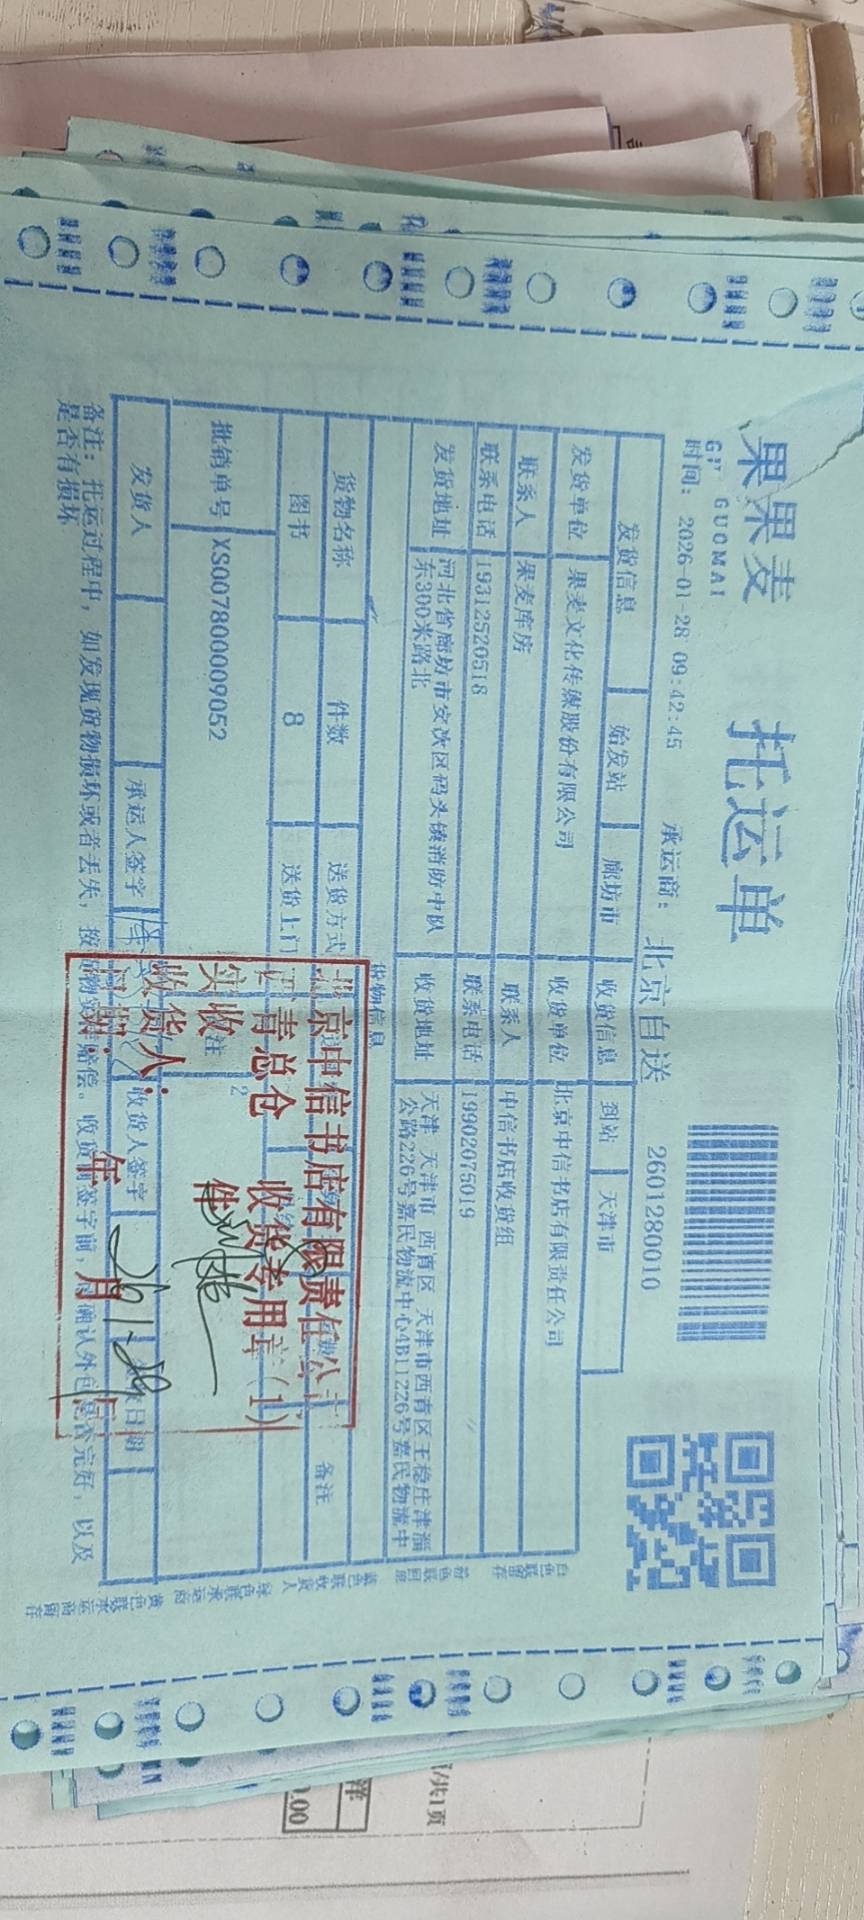 果果麦
GUOMAI
托运单
2601280010
时间: 2026-01-28 09:42:45
承运商: 北京自送
发货信息 始发站 廊坊市 收货信息 到站 天津市
发货单位 果麦文化传媒股份有限公司 收货单位 北京中信书店有限责任公司
联系人 果麦库房 联系人 中信书店收货组
联系电话 19312520518 联系电话 19902075019
发货地址 河北省廊坊市安次区码头镇消防中队 收货地址 天津 天津市 西青区 天津市西青区王稳庄津淄
东300米路北 公路226号嘉民物流中心4B11226号嘉民物流中
货物信息
货物名称 件数 送货方式 备注
图书 8 送货上门
批销单号 XS007800009052 注 2
发货人 承运人签字 收货人签字 日期
备注: 托运过程中, 如发现货物损坏或者丢失, 按货物 赔偿。收货 签字前, 确认外包 是否完好, 以及
是否有损坏
北京中信书店有限责任公司
青总仓 收货专用章(1)
实收 件
收货人:
年 月 日
26.1.29
白色联留存
粉色联回单
蓝色联收货人
绿色联承运商
黄色联承运商留存
/共1页